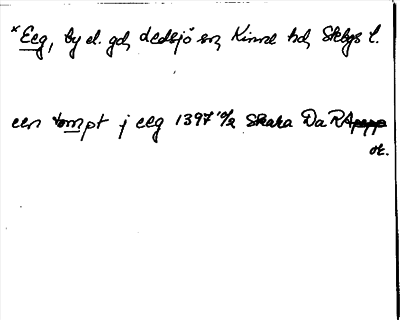 *Eeg, by el. gd, Dedsjö sn, Kinne hd, Skbgs l.
een tompt j eeg 1397 10/2 Skara Da RA
or.